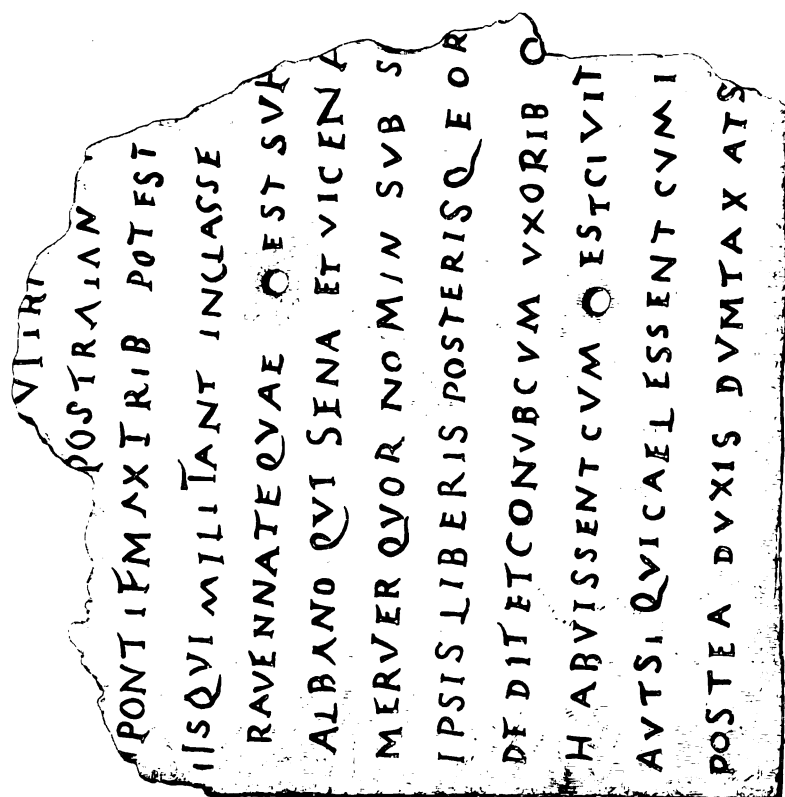 VI TRI
POSTRAIAN
PONTIF MAX TRIB POTEST
IIS QVI MILITANT IN CLASSE
RAVENNATE QVAE EST SVB
ALBANO QVI SENA ET VICENA
MERVER QVOR NOMIN SVB S
IPSIS LIBERIS POSTERISQ EOR
DEDIT ET CONVB CVM VXORIB
HABVISSENT CVM EST CIVIT
AVT SI QVI CAEL ESSENT CVM I
POSTEA DVXIS DVMTAXAT S